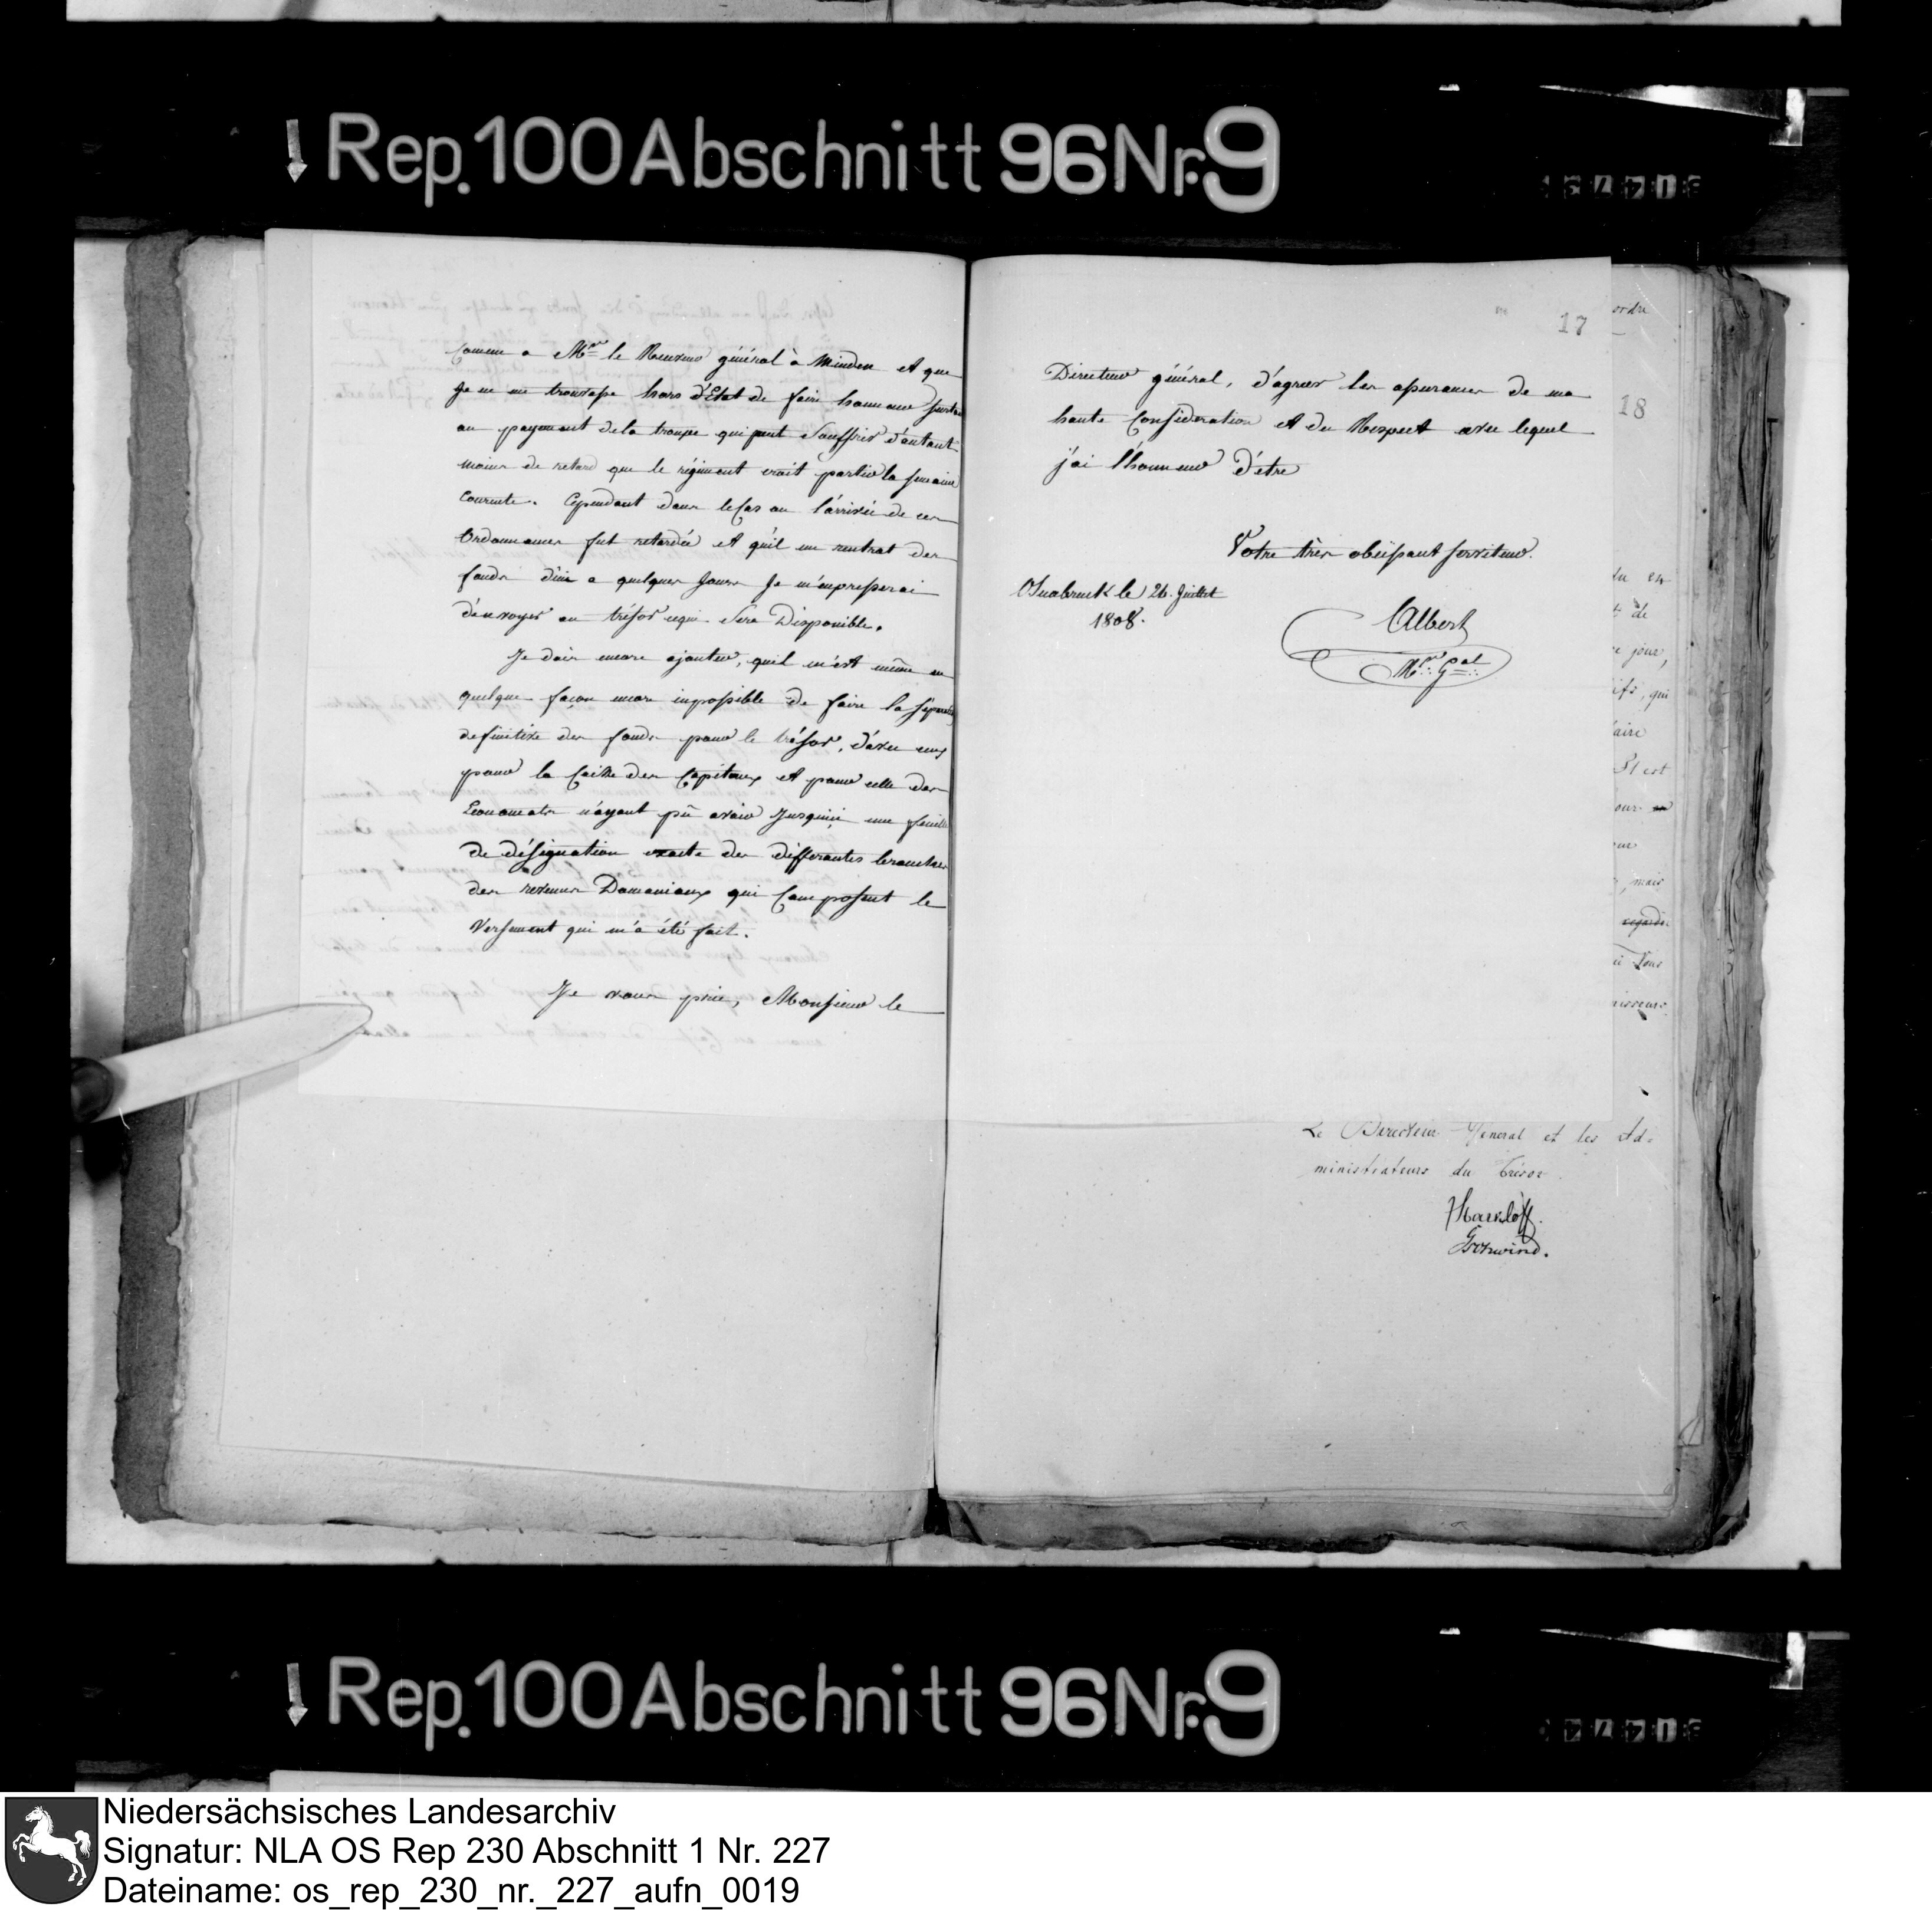 Rep. 100 Abschnitt 96 Nr. 9
Comme a Mr. le Receveur général à Minden et que
Je ne me trouvasse hors d'Etat de faire honneur surtout
au payement de la troupe qui peut Souffrir d'autant
moins de retard que le régiment croit partir la semaine
Courente. Cependant dans le Cas ou l'arrivée de ces
Ordonnances fut retardée et qu'il en rentrat des
fonds d'ici a quelques Jours Je m'empresserai
d'envoyer au trésor ce qui Sera Disponible.
Je dois encore ajouter, qu'il m'est même en
quelque façon encore impossible de faire la
definitive des fonds pour le trésor, d'avec ceux
pour la Caisse des Capitaux et pour celle des
Economats n'ayant pû avoir Jusqu'ici une feuille
de désignation exacte des differantes branches
des revenus Domaniaux qui Composent le
Versement qui m'a été fait.
Je vous prie, Monsieur le
17
Directeur général, d'agréer les assurances de ma
haute Consideration et du Respect avec lequel
j'ai l'honneur d'être
Votre très obéissant serviteur.
Osnabruck le 26. Juillet
1808.
Albert
Rr. Gal
ordre
18
de
jour,
qui
aire
Il est
mais
Le Directeur General et les Ad-
ministrateurs du Trésor.
Rep. 100 Abschnitt 96 Nr. 9
Niedersächsisches Landesarchiv
Signatur: NLA OS Rep 230 Abschnitt 1 Nr. 227
Dateiname: os_rep_230_nr._227_aufn_0019